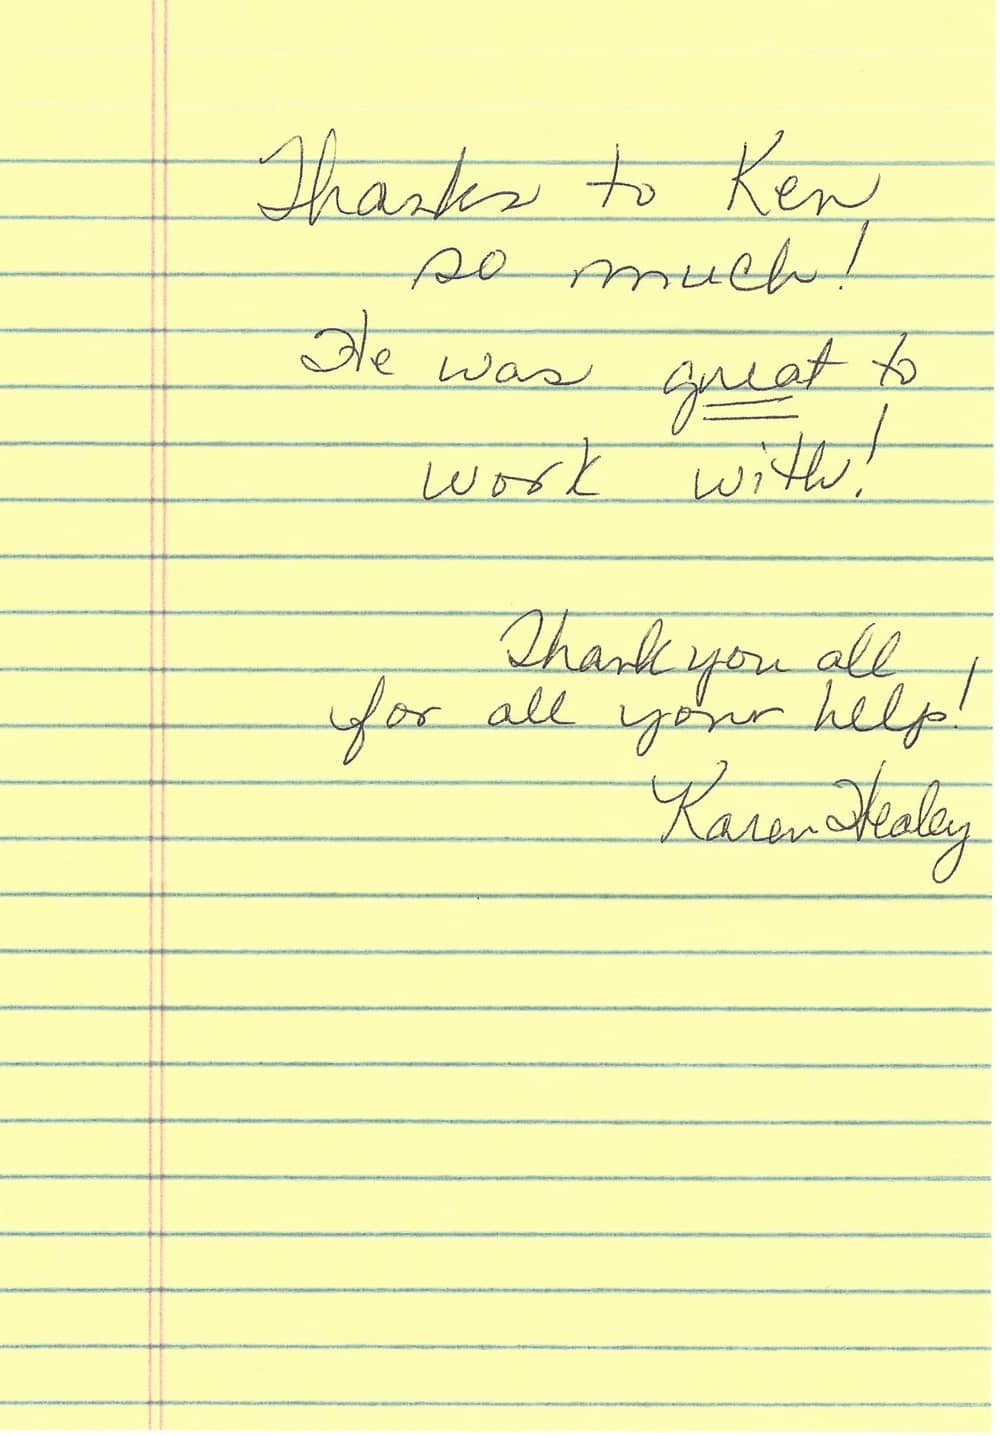 Thanks to Ken
so much!
He was great to
work with!
Thank you all
for all your help!
Karen Healey